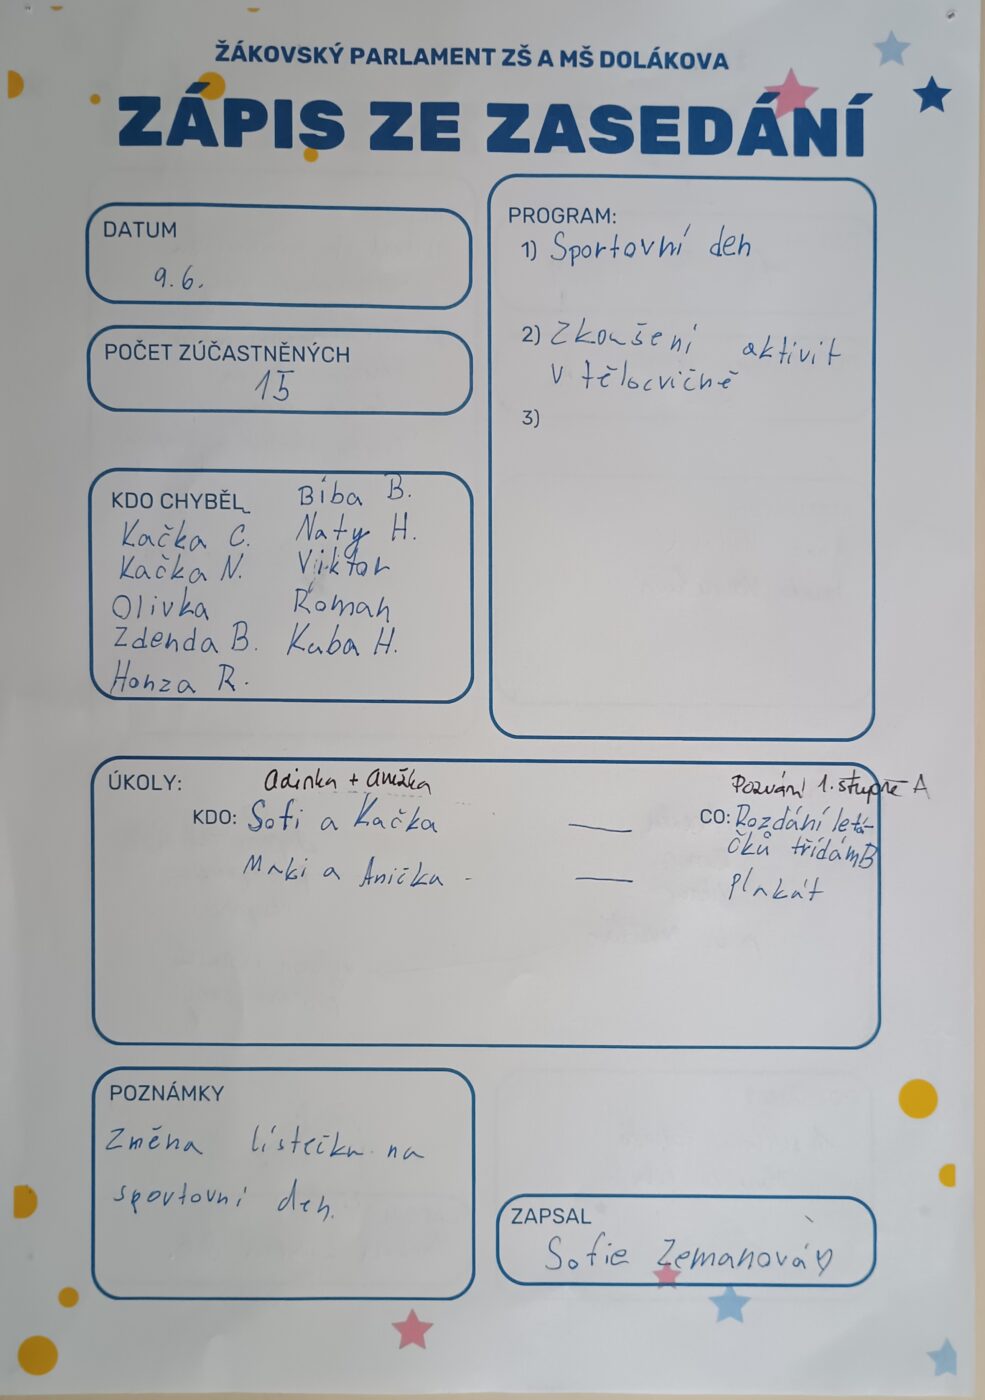 ŽÁKOVSKÝ PARLAMENT ZŠ A MŠ DOLÁKOVA
ZÁPIS ZE ZASEDÁNÍ
DATUM
9.6.
POČET ZÚČASTNĚNÝCH
15
KDO CHYBĚL
Kačka C.
Kačka N.
Olivka
Zdenda B.
Honza R.
Biba B.
Naty H.
Viktor
Roman
Kuba H.
PROGRAM:
1) Sportovní den
2) Zkoušení aktivit
v tělocvičně
3)
ÚKOLY:
Adinka + Anežka
Pozvání 1. stupně A
KDO: Sofi a Kačka — CO: Rozdání letá-
čků třídám B
Maki a Anička - — plakát
POZNÁMKY
Změna lístečku na
sportovní den.
ZAPSAL
Sofie Zemanová♡